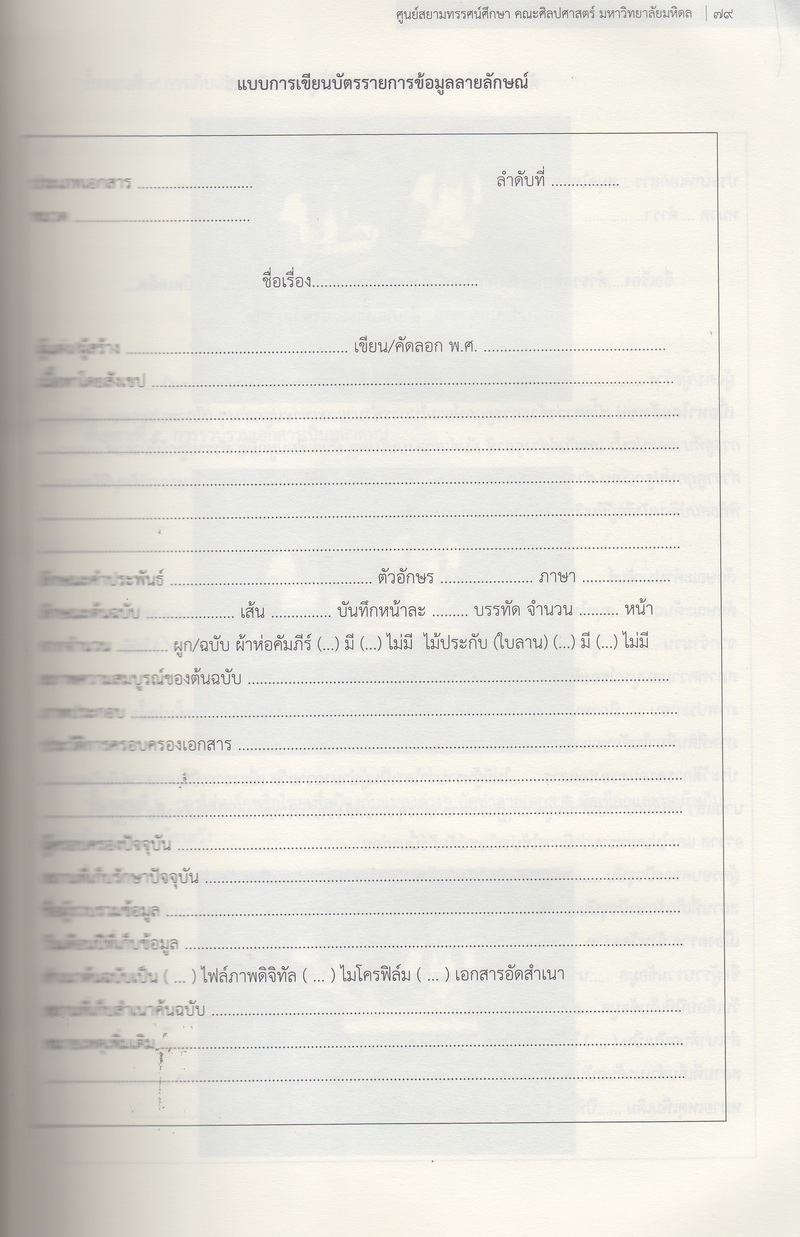 ศูนย์สยามทรรศน์ศึกษา คณะศิลปศาสตร์ มหาวิทยาลัยมหิดล | ๗๙
แบบการเขียนบัตรรายการข้อมูลลายลักษณ์
ประเภทเอกสาร ............................ ลำดับที่ .................
หมวด ...........................................
ชื่อเรื่อง.........................................
ผู้แต่ง/ผู้สร้าง ...................................................... เขียน/คัดลอก พ.ศ. .............................................
เนื้อหาโดยสังเขป ................................................................................................
................................................................................................
................................................................................................
................................................................................................
................................................................................................
................................................................................................
ลักษณะคำประพันธ์ .................................................. ตัวอักษร ....................... ภาษา ......................
ลักษณะต้นฉบับ ...................... เส้น ............... บันทึกหน้าละ ......... บรรทัด จำนวน .......... หน้า
............. ผูก/ฉบับ ผ้าห่อคัมภีร์ (...) มี (...) ไม่มี ไม้ประกับ (ใบลาน) (...) มี (...) ไม่มี
สภาพความสมบูรณ์ของต้นฉบับ ................................................................................
ภาพประกอบ ................................................................................................
ประวัติการครอบครองเอกสาร ................................................................................
................................................................................................
................................................................................................
ผู้ครอบครองปัจจุบัน ................................................................................
สถานที่เก็บรักษาปัจจุบัน ................................................................................
ชื่อผู้รวบรวมข้อมูล ................................................................................
วันเดือนปีที่เก็บข้อมูล ................................................................................
สำเนาต้นฉบับเป็น ( ... ) ไฟล์ภาพดิจิทัล ( ... ) ไมโครฟิล์ม ( ... ) เอกสารอัดสำเนา
สถานที่เก็บสำเนาต้นฉบับ ................................................................................
หมายเหตุเพิ่มเติม ................................................................................
................................................................................................